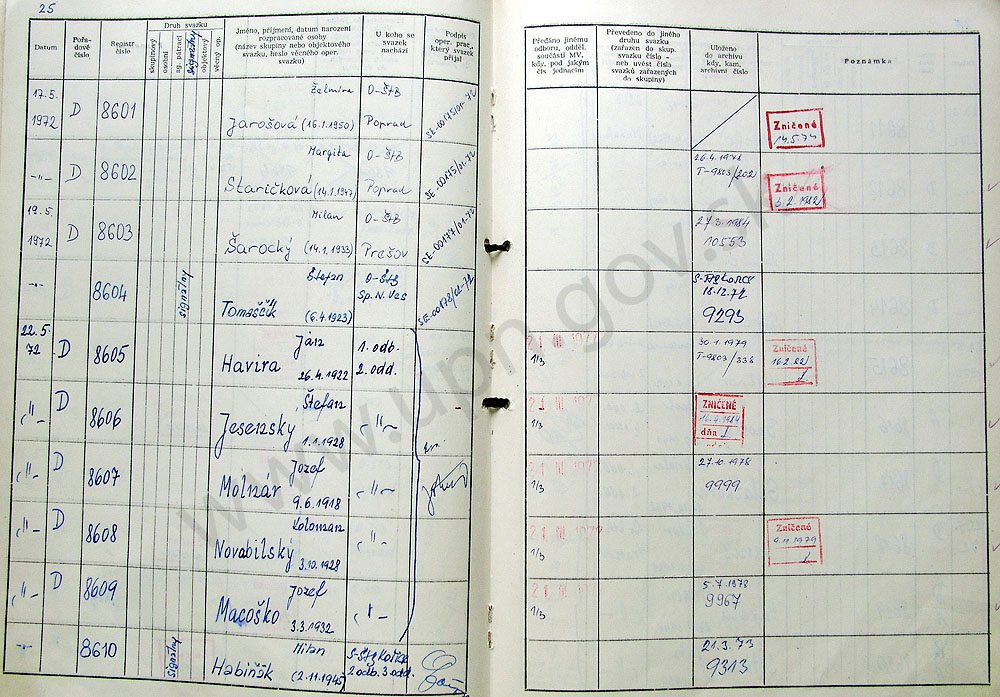 25
Datum
Pořa-
dové
číslo
Registr.
číslo
Druh svazku
skupinový
osobní
ag. pátrací
signálny
objektový
věcný op.
Jméno, příjmení, datum narození
rozpracované osoby
(název skupiny nebo objektového
svazku, heslo věcného oper.
svazku)
U koho se
svazek
nachází
Podpis
oper. prac.,
který svazek
přijal
Předáno jinému
odboru, odděl.
součásti MV,
kdy, pod jakým
čís jednacím
Převedeno do jiného
druhu svazku
(zařazen do skup.
svazku číslo -
neb uvést čísla
svazků zařazených
do skupiny)
Uloženo
do archivu
kdy, kam,
archivní číslo
Poznámka
17.5.
1972
D
8601
Želmíra
Jarošová (16.1.1950)
O-ŠtB
Poprad
SE-00175/01-72
Zničené
14.5.74
-"-
D
8602
Margita
Staričková (14.1.1947)
O-ŠtB
Poprad
SE-00175/01-72
26.4.1978
T-9803/202
Zničené
6.2.1982
19.5.
1972
D
8603
Milan
Šarocký (14.1.1933)
O-ŠtB
Prešov
SE-00177/01-72
27.3.1984
10553
-"-
8604
signálny
Štefan
Tomaščík (6.4.1923)
O-Štb
Sp.N.Ves
SE-00178/01-72
18.12.72
9293
22.5.
72
D
8605
Ján
Havira
26.4.1922
1. odb.
2. odd.
1/3
30.1.1979
T-9803/338
Zničené
-"-
D
8606
Štefan
Jesenský
1.1.1928
-"-
21 III 197
1/3
ZNIČENÉ
16.4.1984
dňa
-"-
D
8607
Jozef
Molnar
9.6.1918
-"-
1/3
27.10.1978
9999
-"-
D
8608
Koloman
Novabilský
3.10.1928
-"-
21 III 197
1/3
Zničené
9.11.1979
-"-
D
8609
Jozef
Macoško
3.3.1932
-"-
1/3
5.7.1978
9967
8610
signálny
Milan
Habiňák (2.11.1945)
S-Štb Košice
2 odb. 3 odd.
21.3.73
9313
www.upn.gov.sk